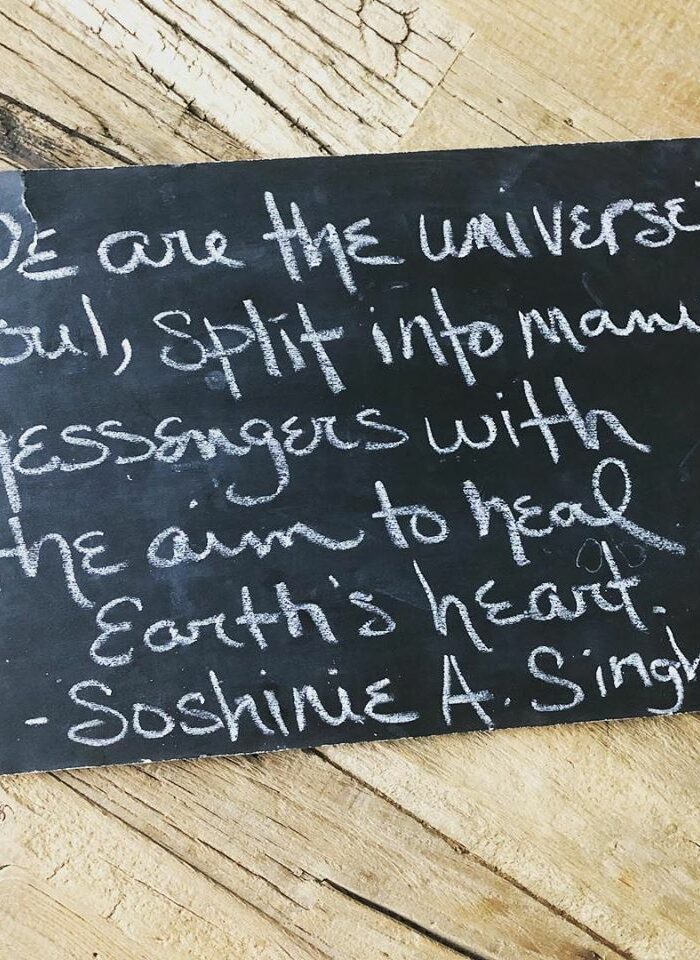 We are the universe'
oul, split into many
messengers with
the aim to heal
Earth's heart.
- Soshinie A. Singh